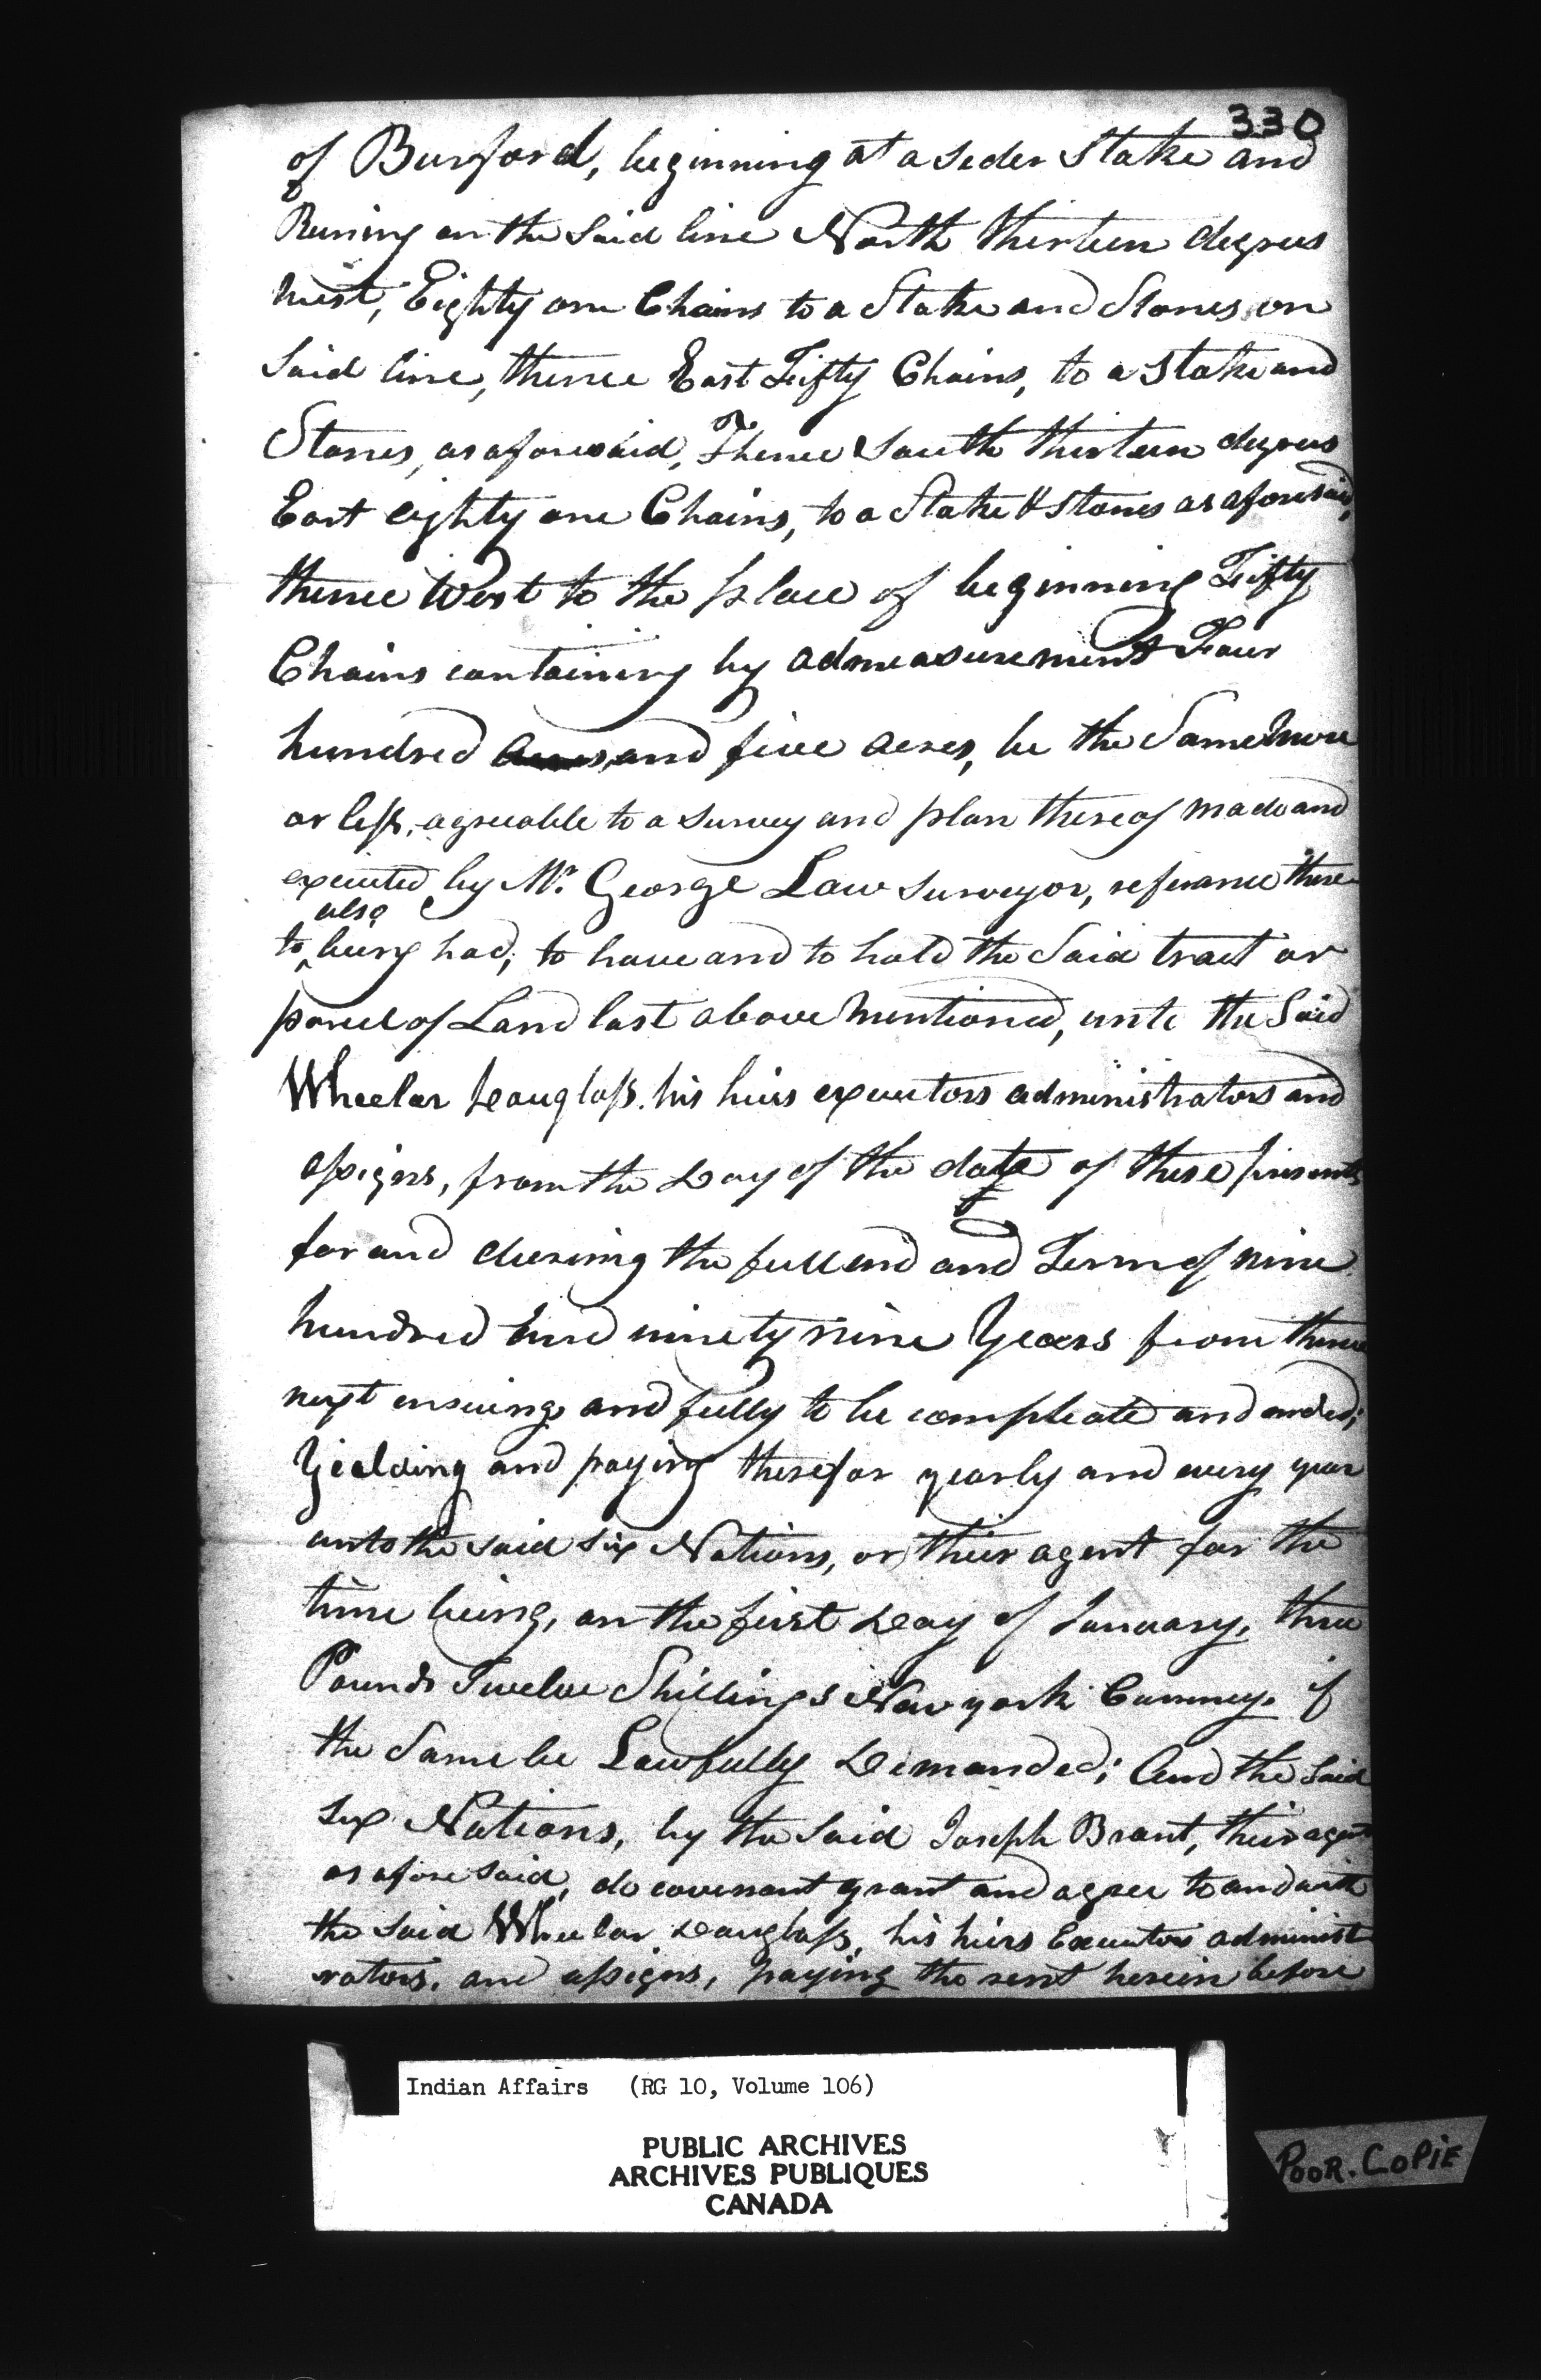 330
of Burford, beginning at a seder Stake and
Runing on the Said line North thirteen degrees
west, Eighty one Chains to a Stake and Stones on
Said line, thence East Fifty Chains, to a Stake and
Stones, as aforesaid, Thence South thirteen degrees
East eighty one Chains, to a Stake & stones as aforesaid,
thence West to the place of beginning Fifty
Chains containing by admeasurement Four
hundred acres and five acres, be the Same more
or less, agreeable to a survey and plan thereof made and
executed by Mr. George Law surveyor, referance there
also
to being had, to have and to hold the Said tract or
parcel of Land last above mentioned, unto the Said
Wheelar Douglass, his heirs executors administrators and
assigns, from the Day of the date of these presents
for and dureing the full end and Term of nine
hundred and ninety nine Years from thence
next ensuing and fully to be compleate and ended;
Yielding and paying therefor yearly and every year
unto the said six Nations, or their agent for the
time being, on the first Day of January, three
Pounds Twelve Shillings New york Currency, if
the Same be Lawfully Demanded; And the Said
six Nations, by the Said Joseph Brant, their agent
as afore Said, do covenant grant and agree to and with
the Said Wheelar Douglass, his heirs Executors administ
rators, and assigns, paying the rent herein before
Indian Affairs (RG 10, Volume 106)
PUBLIC ARCHIVES
ARCHIVES PUBLIQUES
CANADA
POOR. COPIE